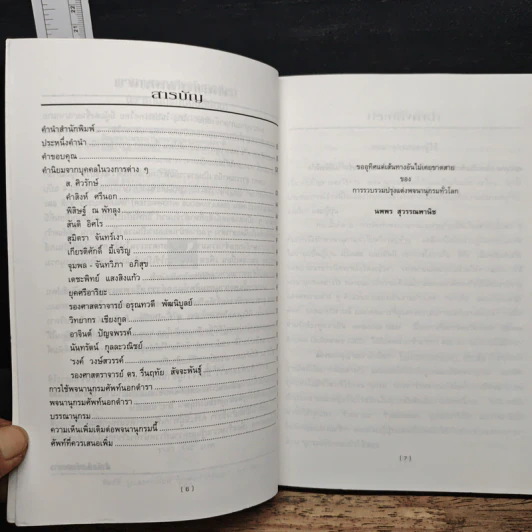 สารบัญ
คำนำสำนักพิมพ์
ประหนึ่งคำนำ
คำขอบคุณ
คำนิยมจากบุคคลในวงการต่าง ๆ
ส. ศิวรักษ์
คำสิงห์ ศรีนอก
พิสิษฐ์ ณ พัทลุง
สันติ อิศโร
สุมิตรา จันทร์เงา
เกียรติศักดิ์ มี้เจริญ
จุมพล - จันทวิภา อภิสุข
เดชะพิทย์ แสงสิงแก้ว
ยุคศรีอาริยะ
รองศาสตราจารย์ อรุณทวดี พัฒนิบูลย์
วิทยากร เชียงกูล
อาจินต์ ปัญจพรรค์
นันทรัตน์ กุลละวณิชย์
'รงค์ วงษ์สวรรค์
รองศาสตราจารย์ ดร. รื่นฤทัย สัจจะพันธุ์
การใช้พจนานุกรมศัพท์นอกตำรา
พจนานุกรมศัพท์นอกตำรา
บรรณานุกรม
ความเห็นเพิ่มเติมต่อพจนานุกรมนี้
ศัพท์ที่ควรเสนอเพิ่ม
ขออุทิศแด่เส้นทางอันไม่เคยขาดสาย
ของ
การรวบรวมปรุงแต่งพจนานุกรมทั่วโลก
นพพร สุวรรณพานิช